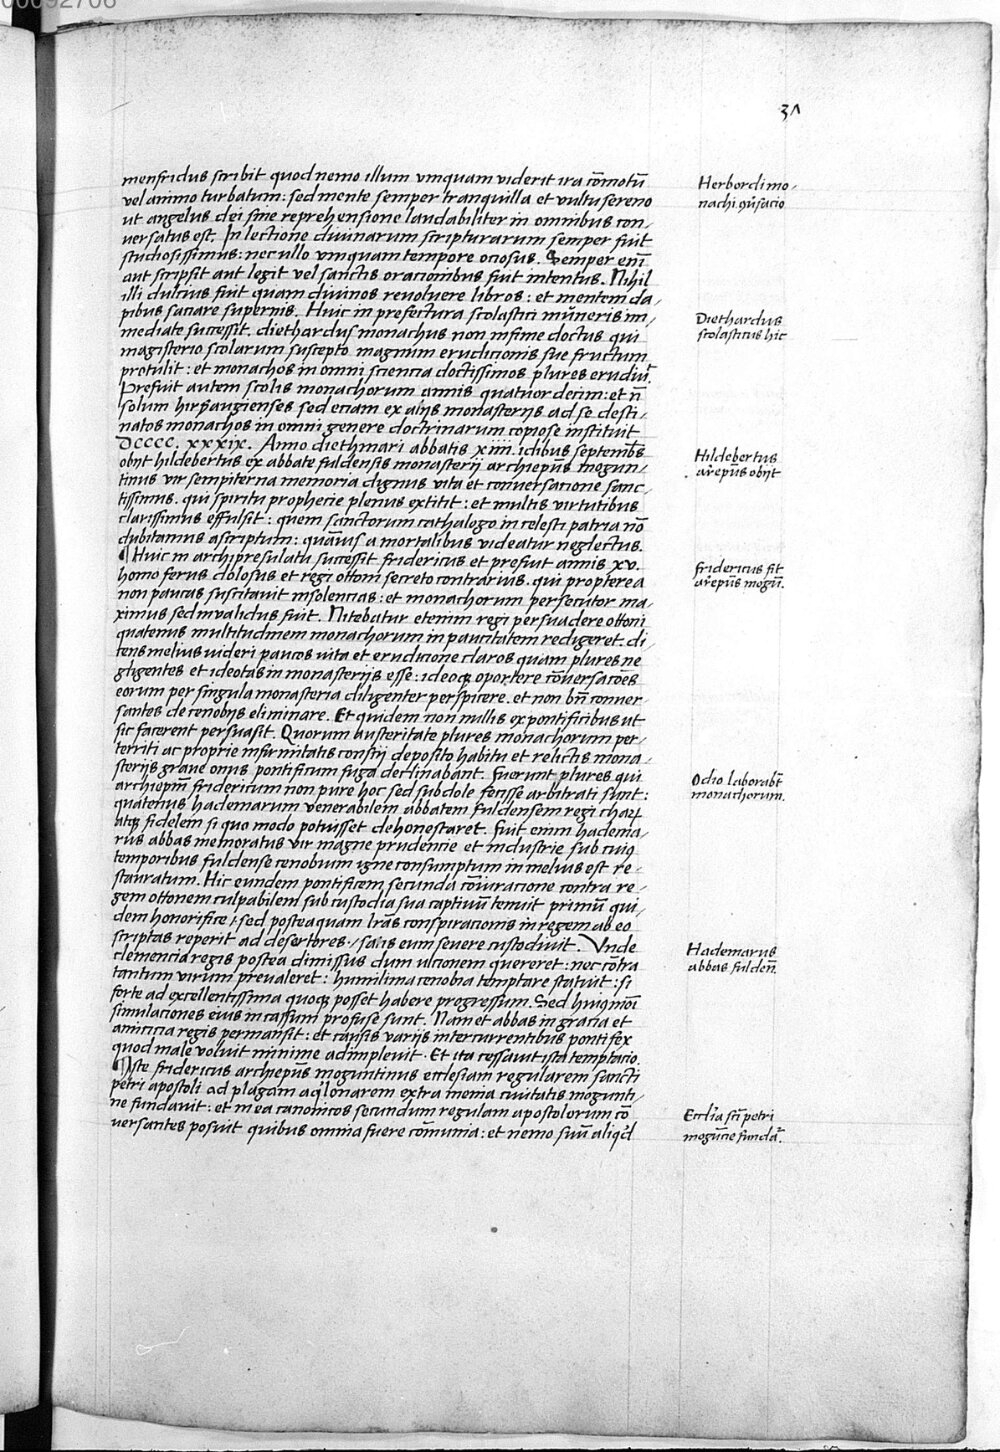 31
menfridus scribit quod nemo illum vmquam viderit ira cōmotū
vel animo turbatum: sed mente semper tranquilla et vultu sereno
ut angelus dei sine reprehensione laudabiliter in omnibus con,
versatus est. In lectione diuinarum scripturarum semper fuit
studiosissimus: nec ullo vmquam tempore ociosus. Semper enī
aut scripsit aut legit vel sanctis oracionibus fuit intentus. Nihil
illi dulcius fuit quam diuinos reuoluere libros: et mentem da,
pibus saciare supernis. Huic in prefectura scolastici mūneris im,
mediate successit. diethardus monachus non infime doctus qui
magisterio scolarum suscepto magnum erudicionis sue fructum
protulit: et monachos in omni sciencia doctissimos plures erudiuᵗ.
Prefuit autem scolis monachorum annis quatuor decim: et nō
solum hirsaugienses sed eciam ex alijs monasterijs ad se desti,
natos monachos in omni genere doctrinarum copiose instituit
DCCCC. xxxix. Anno diethmari abbatis xiiii. idibus septembs
obijt hildebertus ex abbate fuldensis monasterij archiepūs mogun,
tinus vir sempiterna memoria dignus vita et conuersacione sanc,
tissimus. qui spiritu prophecie plenus extitit: et multis virtutibus
clarissimus effulsit: quem sanctorum cathalogo in celesti patria nō
dubitamus ascriptum: quāuis a mortalibus videatur neglectus.
¶ Huic in archipresulatu successit fridericus et prefuit annis xv.
homo ferus dolosus et regi ottoni secreto contrarius. qui propterea
non paucas suscitauit insolencias: et monachorum persecutor ma,
ximus sed inualidus fuit. Nitebatur etenim regi persuadere ottoni
quatenus multitudinem monachorum in paucitatem redigeret. di
cens melius videri paucos vita et erudicione claros quam plures ne
gligentes et ideotas in monasterijs esse: ideoq; oportere cōuersacōes
eorum per singula monasteria diligenter perspicere. et non bn̄ conuer
santes de cenobijs eliminare. Et quidem non nullis ex pontificibus ut
sic facerent persuasit. Quorum austeritate plures monachorum per,
territi ac proprie infirmitatis conscij deposito habitu et relictis mona,
sterijs graue onus pontificum fuga declinabant. Fuerunt plures qui
archiepm̄ fridericum non pure hoc sed subdole fecisse arbitrati sunt:
quatenus hademarum venerabilem abbatem fuldensem regi charū
atq; fidelem si quo modo potuisset dehonestaret. Fuit enim hadema,
rus abbas memoratus vir magne prudencie et industrie sub cuiꝰ
temporibus fuldense cenobium igne consumptum in melius est re,
stauratum. Hic eundem pontificem secunda cōiuracione contra re,
gem ottonem culpabilem sub custodia sua captiuū tenuit primū qui,
dem honorifice: sed posteaquam lrās conspiracionis in regem ab eo
scriptas reperit ad desertores, satis eum seuere custodiuit. Vnde
clemencia regis postea dimissus dum ulcionem quereret: nec cōtra
tantum virum preualeret: humilima cenobia temptare statuit: si
forte ad excellentissima quoq; posset habere progressum. Sed huiꝰmōi
simulaciones eius incassum profuse sunt. Nam et abbas in gracia et
amicicia regis permansit: et causis varijs intercurrentibus pontifex
quod male voluit minime adimpleuit. Et ita cessauit ista temptacio.
¶ Iste fridericus archiepūs moguntinus ecclesiam regularem sancti
petri apostoli ad plagam aqⁱlonarem extra menia ciuitatis mogunti,
ne fundauit: et in ea canonicos secundum regulam apostolorum cō
uersantes posuit quibus omnia fuere cōmunia: et nemo suū aliqⁱd
Herbordi mo,
nachi
Diethardus
scolasticus hic
Hildebertus
arepūs obijt
fridericus fit
arepūs mogū.
Odio laborabāt
monachorum.
Hademarus
abbas fulden̄.
Ecclīa scī petri
mogūcie fundaᵗ.